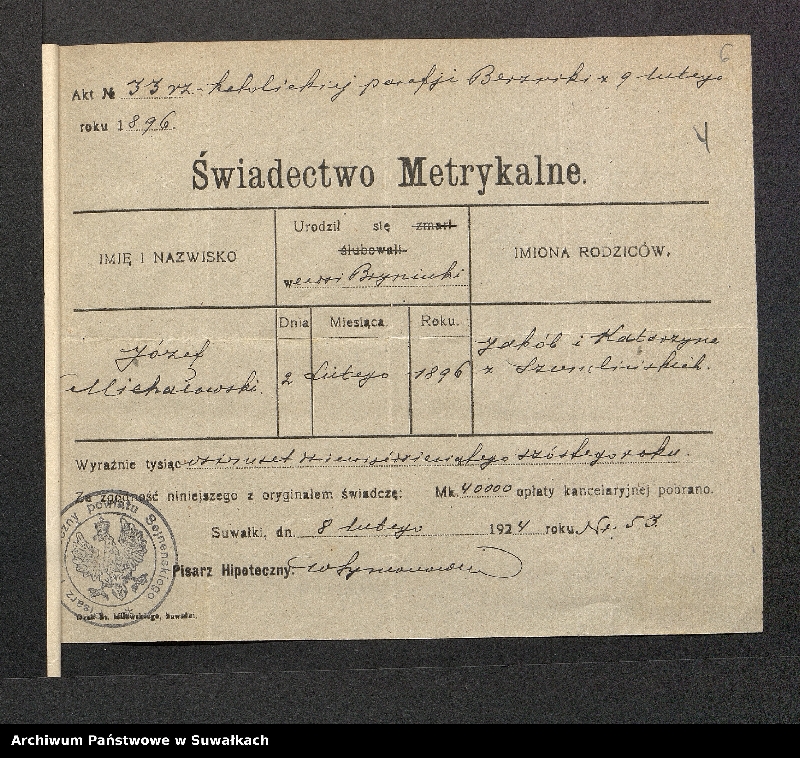 6
Akt № 33 rz.-katolickiej parafji Berzniki z 9 lutego
roku 1896.
4
Świadectwo Metrykalne.
IMIĘ I NAZWISKO
Urodził się zmarł
ślubowali
we wsi
IMIONA RODZICÓW.
Dnia Miesiąca Roku.
Józef
Michałowski.
2 Lutego 1896
Jakób i Katarzyna
z
Wyraźnie tysiąc ośmset dziewięćdziesiątego szóstego roku.
Za zgodność niniejszego z oryginałem świadczę: Mk. 40000 opłaty kancelaryjnej pobrano.
Suwałki, dn. 8 lutego 1924 roku. Nr. 53.
Pisarz Hipoteczny:
Pisarz Hipoteczny powiatu Sejneńskiego
Suwałki.
Archiwum Państwowe w Suwałkach